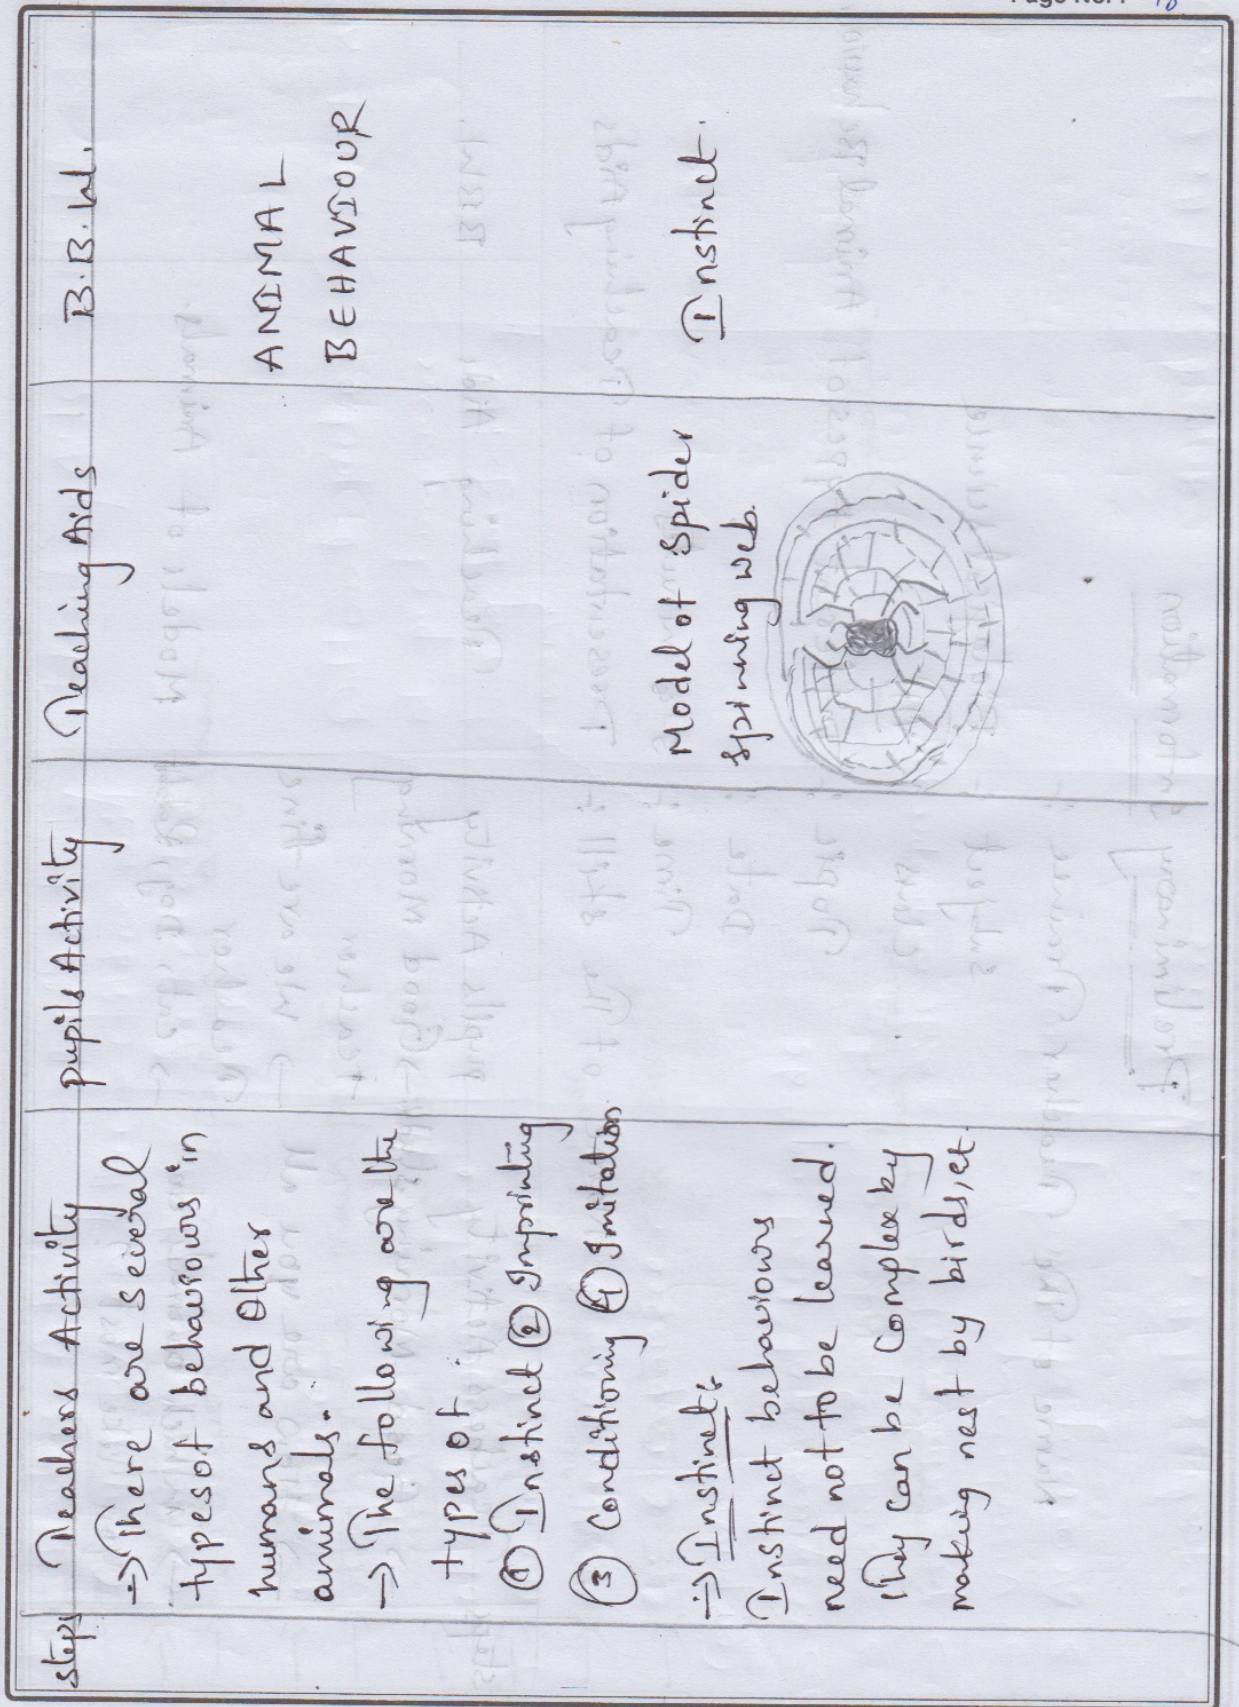 Page No. :
steps Teachers Activity pupils Activity Teaching Aids B.B.W.
→ There are several
types of behaviours in
humans and Other
animals.
→ The following are the
types of.
① Instinct ② Imprinting
③ Conditioning ④ Imitation
→ Instinct :
Instinct behaviours
need not to be learned.
They can be Complex by
making nest by birds, et.
Model of Spider
Spinning web.
ANIMAL
BEHAVIOUR
Instinct.